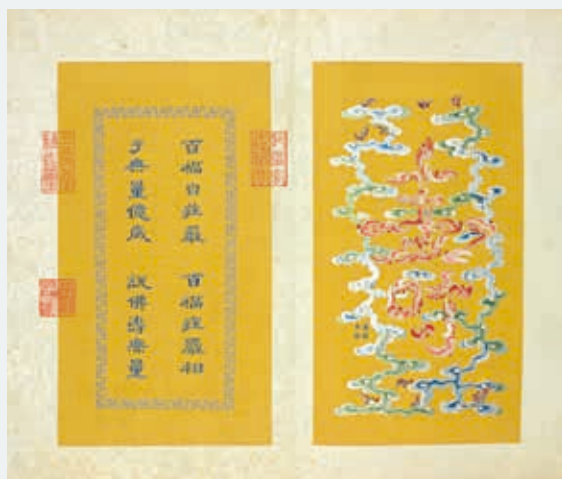 百福自莊嚴 百福莊嚴相
于無量億歲 説佛壽無量